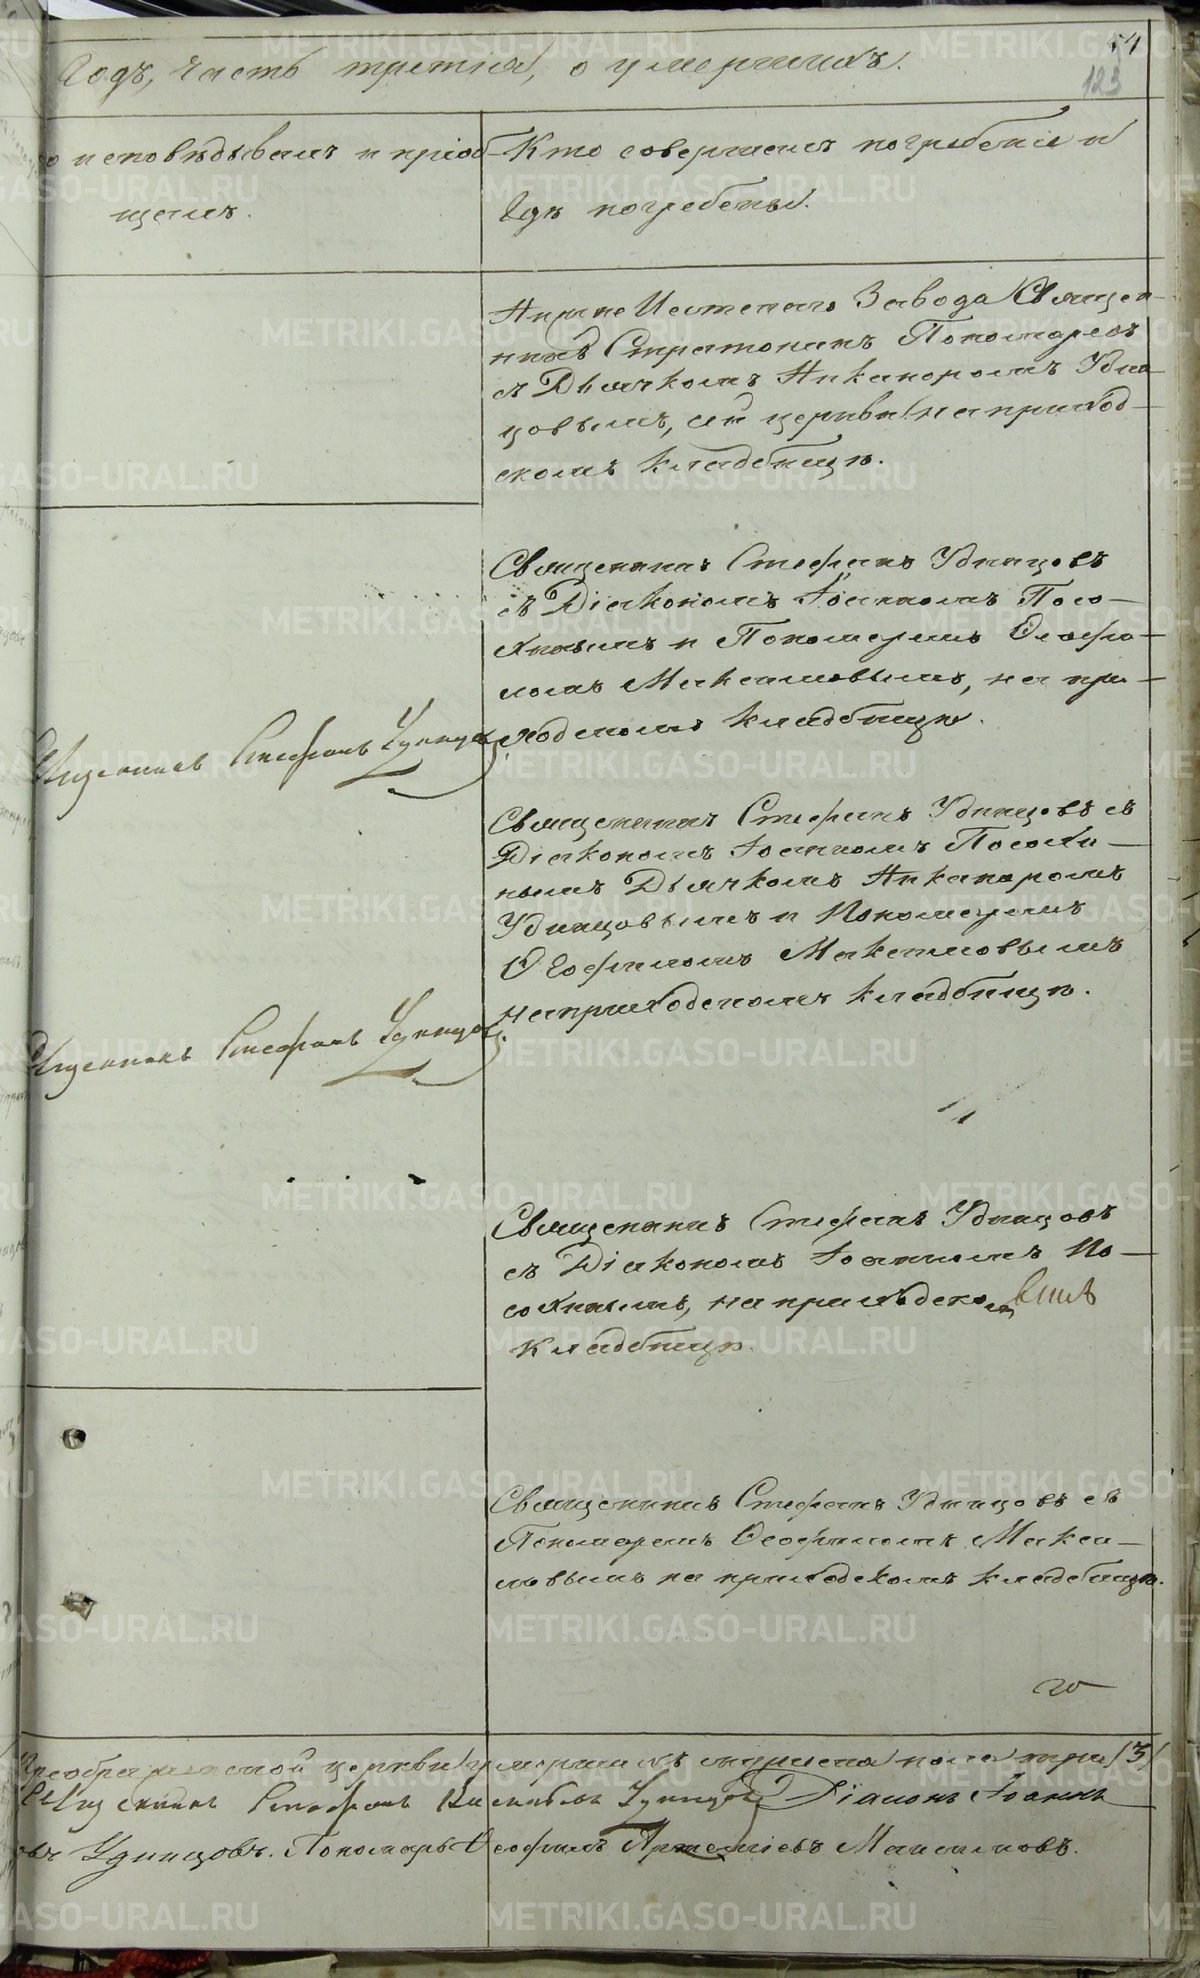 54
123
Годъ, часть третія, о умершихъ.
о исповѣдывалъ и пріоб-
щалъ.
Кто совершалъ погребеніе и
гдѣ погребены.
Завода Священ-
никъ Стратоникъ Пономаревъ
съ Дьячкомъ Никаноромъ Удин-
цовымъ, сей церкви на приход-
скомъ кладбищѣ.
Священникъ Стефанъ Удинцовъ
съ Діакономъ Іоанномъ Посо-
хинымъ и Пономаремъ Ѳеофи-
ломъ Максимовымъ, на при-
ходскомъ кладбищѣ.
Священникъ Стефанъ Удинцовъ
Священникъ Стефанъ Удинцовъ съ
Діакономъ Іоанномъ Посохи-
нымъ Дьячкомъ Никаноромъ
Удинцовымъ и Пономаремъ
Ѳеофиломъ Максимовымъ
на приходскомъ кладбищѣ.
Священникъ Стефанъ Удинцовъ
Священникъ Стефанъ Удинцовъ
съ Діакономъ Іоанномъ По-
сохинымъ, на приходскомъ
кладбищѣ.
Священникъ Стефанъ Удинцовъ съ
Пономаремъ Ѳеофиломъ Макси-
мовымъ на приходскомъ кладбищѣ.
церкви умершихъ мужеска пола три /3/
Священникъ Стефанъ Удинцовъ Діаконъ Іоаннъ
Удинцовъ. Пономарь Ѳеофилъ Артеміевъ Максимовъ.
METRIKI.GASO-URAL.RU